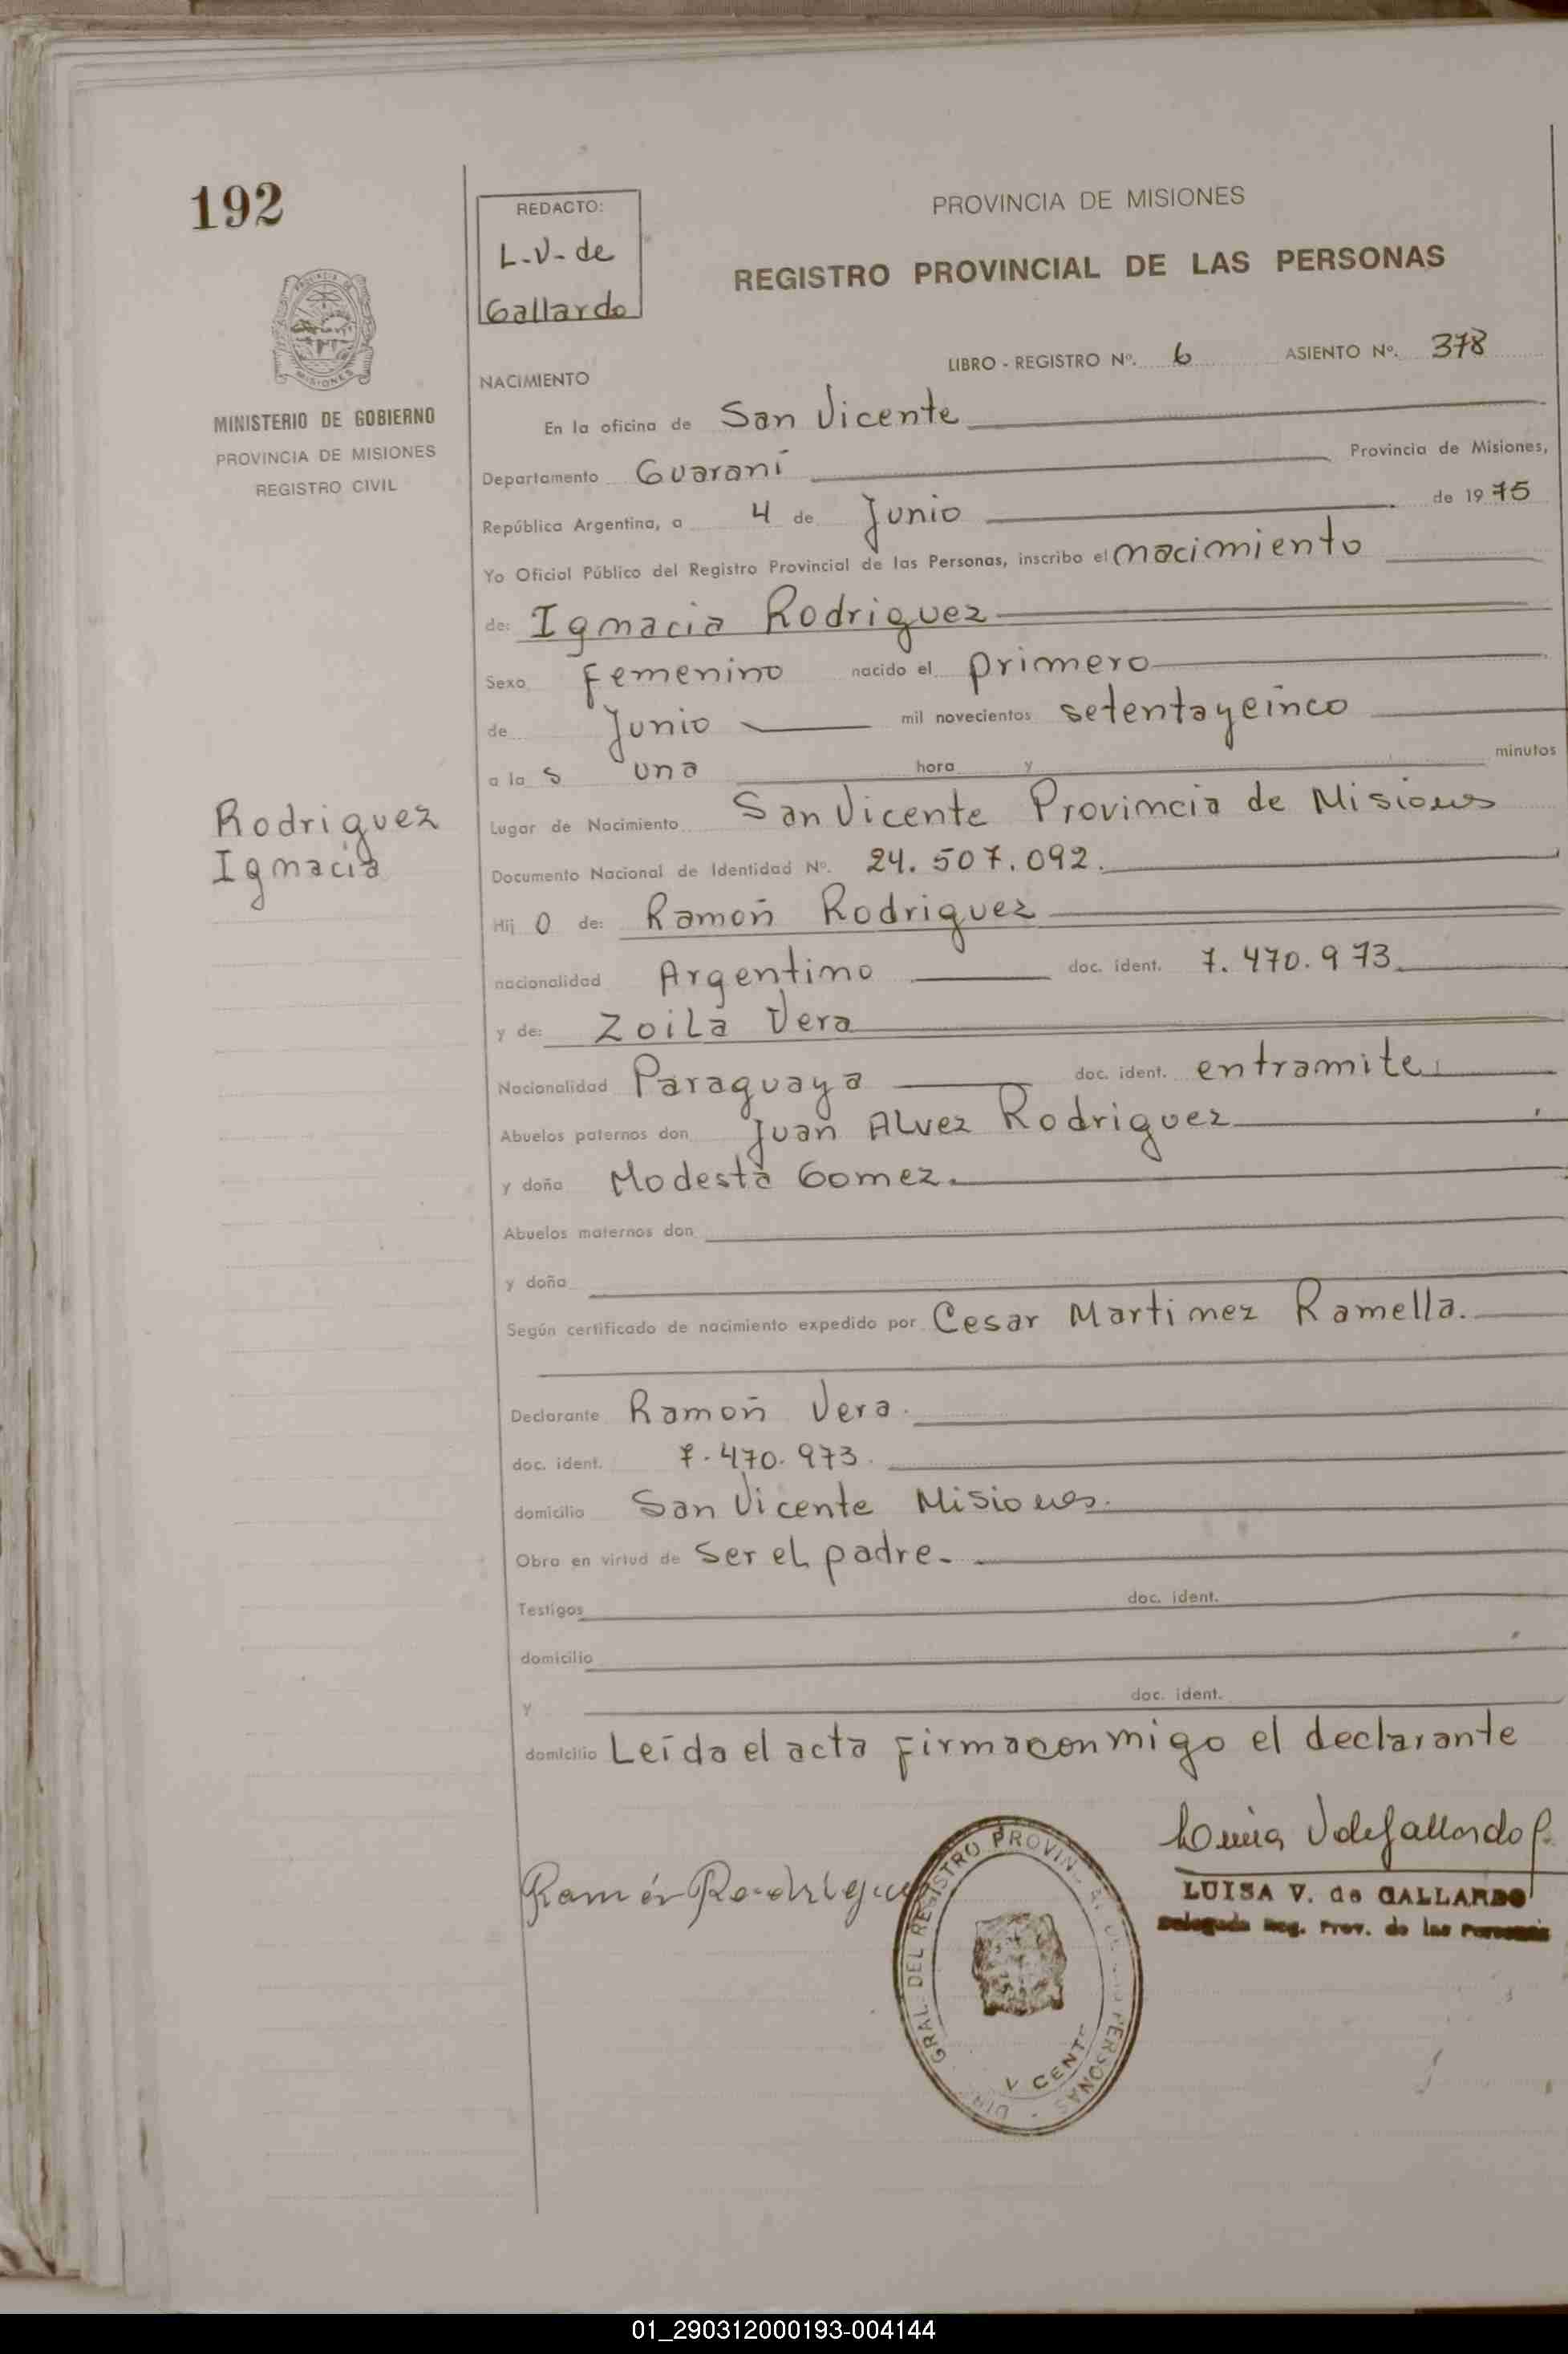 192
REDACTO:
L-V- de
Gallardo
PROVINCIA DE MISIONES
REGISTRO PROVINCIAL DE LAS PERSONAS
LIBRO - REGISTRO Nº. 6 ASIENTO Nº. 378
PROVINCIA DE
MISIONES
MINISTERIO DE GOBIERNO
PROVINCIA DE MISIONES
REGISTRO CIVIL
NACIMIENTO
En la oficina de San Vicente
Departamento Guaraní Provincia de Misiones,
República Argentina, a 4 de Junio de 1975
Yo Oficial Público del Registro Provincial de las Personas, inscribo el nacimiento
de: Ignacia Rodriguez
Sexo Femenino nacido el primero
de Junio mil novecientos setentaycinco
a la s una hora y minutos
Rodriguez
Ignacia
Lugar de Nacimiento San Vicente Provincia de Misiones
Documento Nacional de Identidad Nº. 24.507.092.
Hij o de: Ramoń Rodriguez
nacionalidad Argentino doc. ident. 7.470.973
y de: Zoila Vera
Nacionalidad Paraguaya doc. ident. entramite
Abuelos paternos don Juan Alvez Rodriguez
y doña Modesta Gomez.
Abuelos maternos don
y doña
Según certificado de nacimiento expedido por Cesar Martinez Ramella.
Declarante Ramoń Vera.
doc. ident. 7.470.973.
domicilio San Vicente Misiones.
Obra en virtud de ser el padre.
Testigos doc. ident.
domicilio
y doc. ident.
domicilio Leída el acta firmaconmigo el declarante
Ramón Rodriguez
Luisa V de Gallardo
LUISA V. de GALLARDO
Delegada Reg. Prov. de las Personas
DIR. GRAL. DEL REGISTRO PROVIN DE PERSONAS
V CENTE
01_290312000193-004144